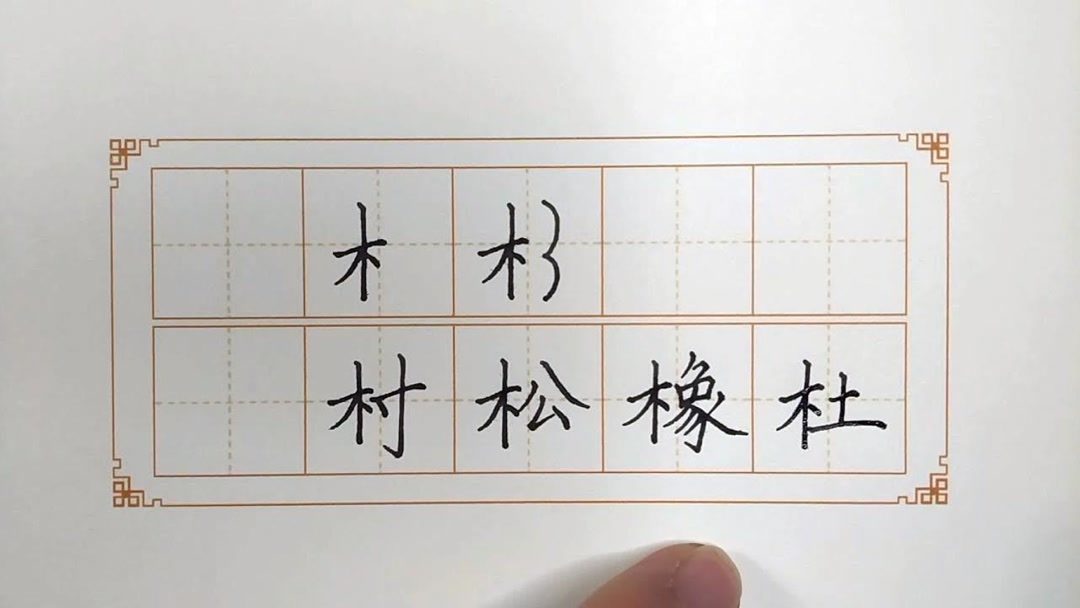 木 杉
村 松 橡 杜